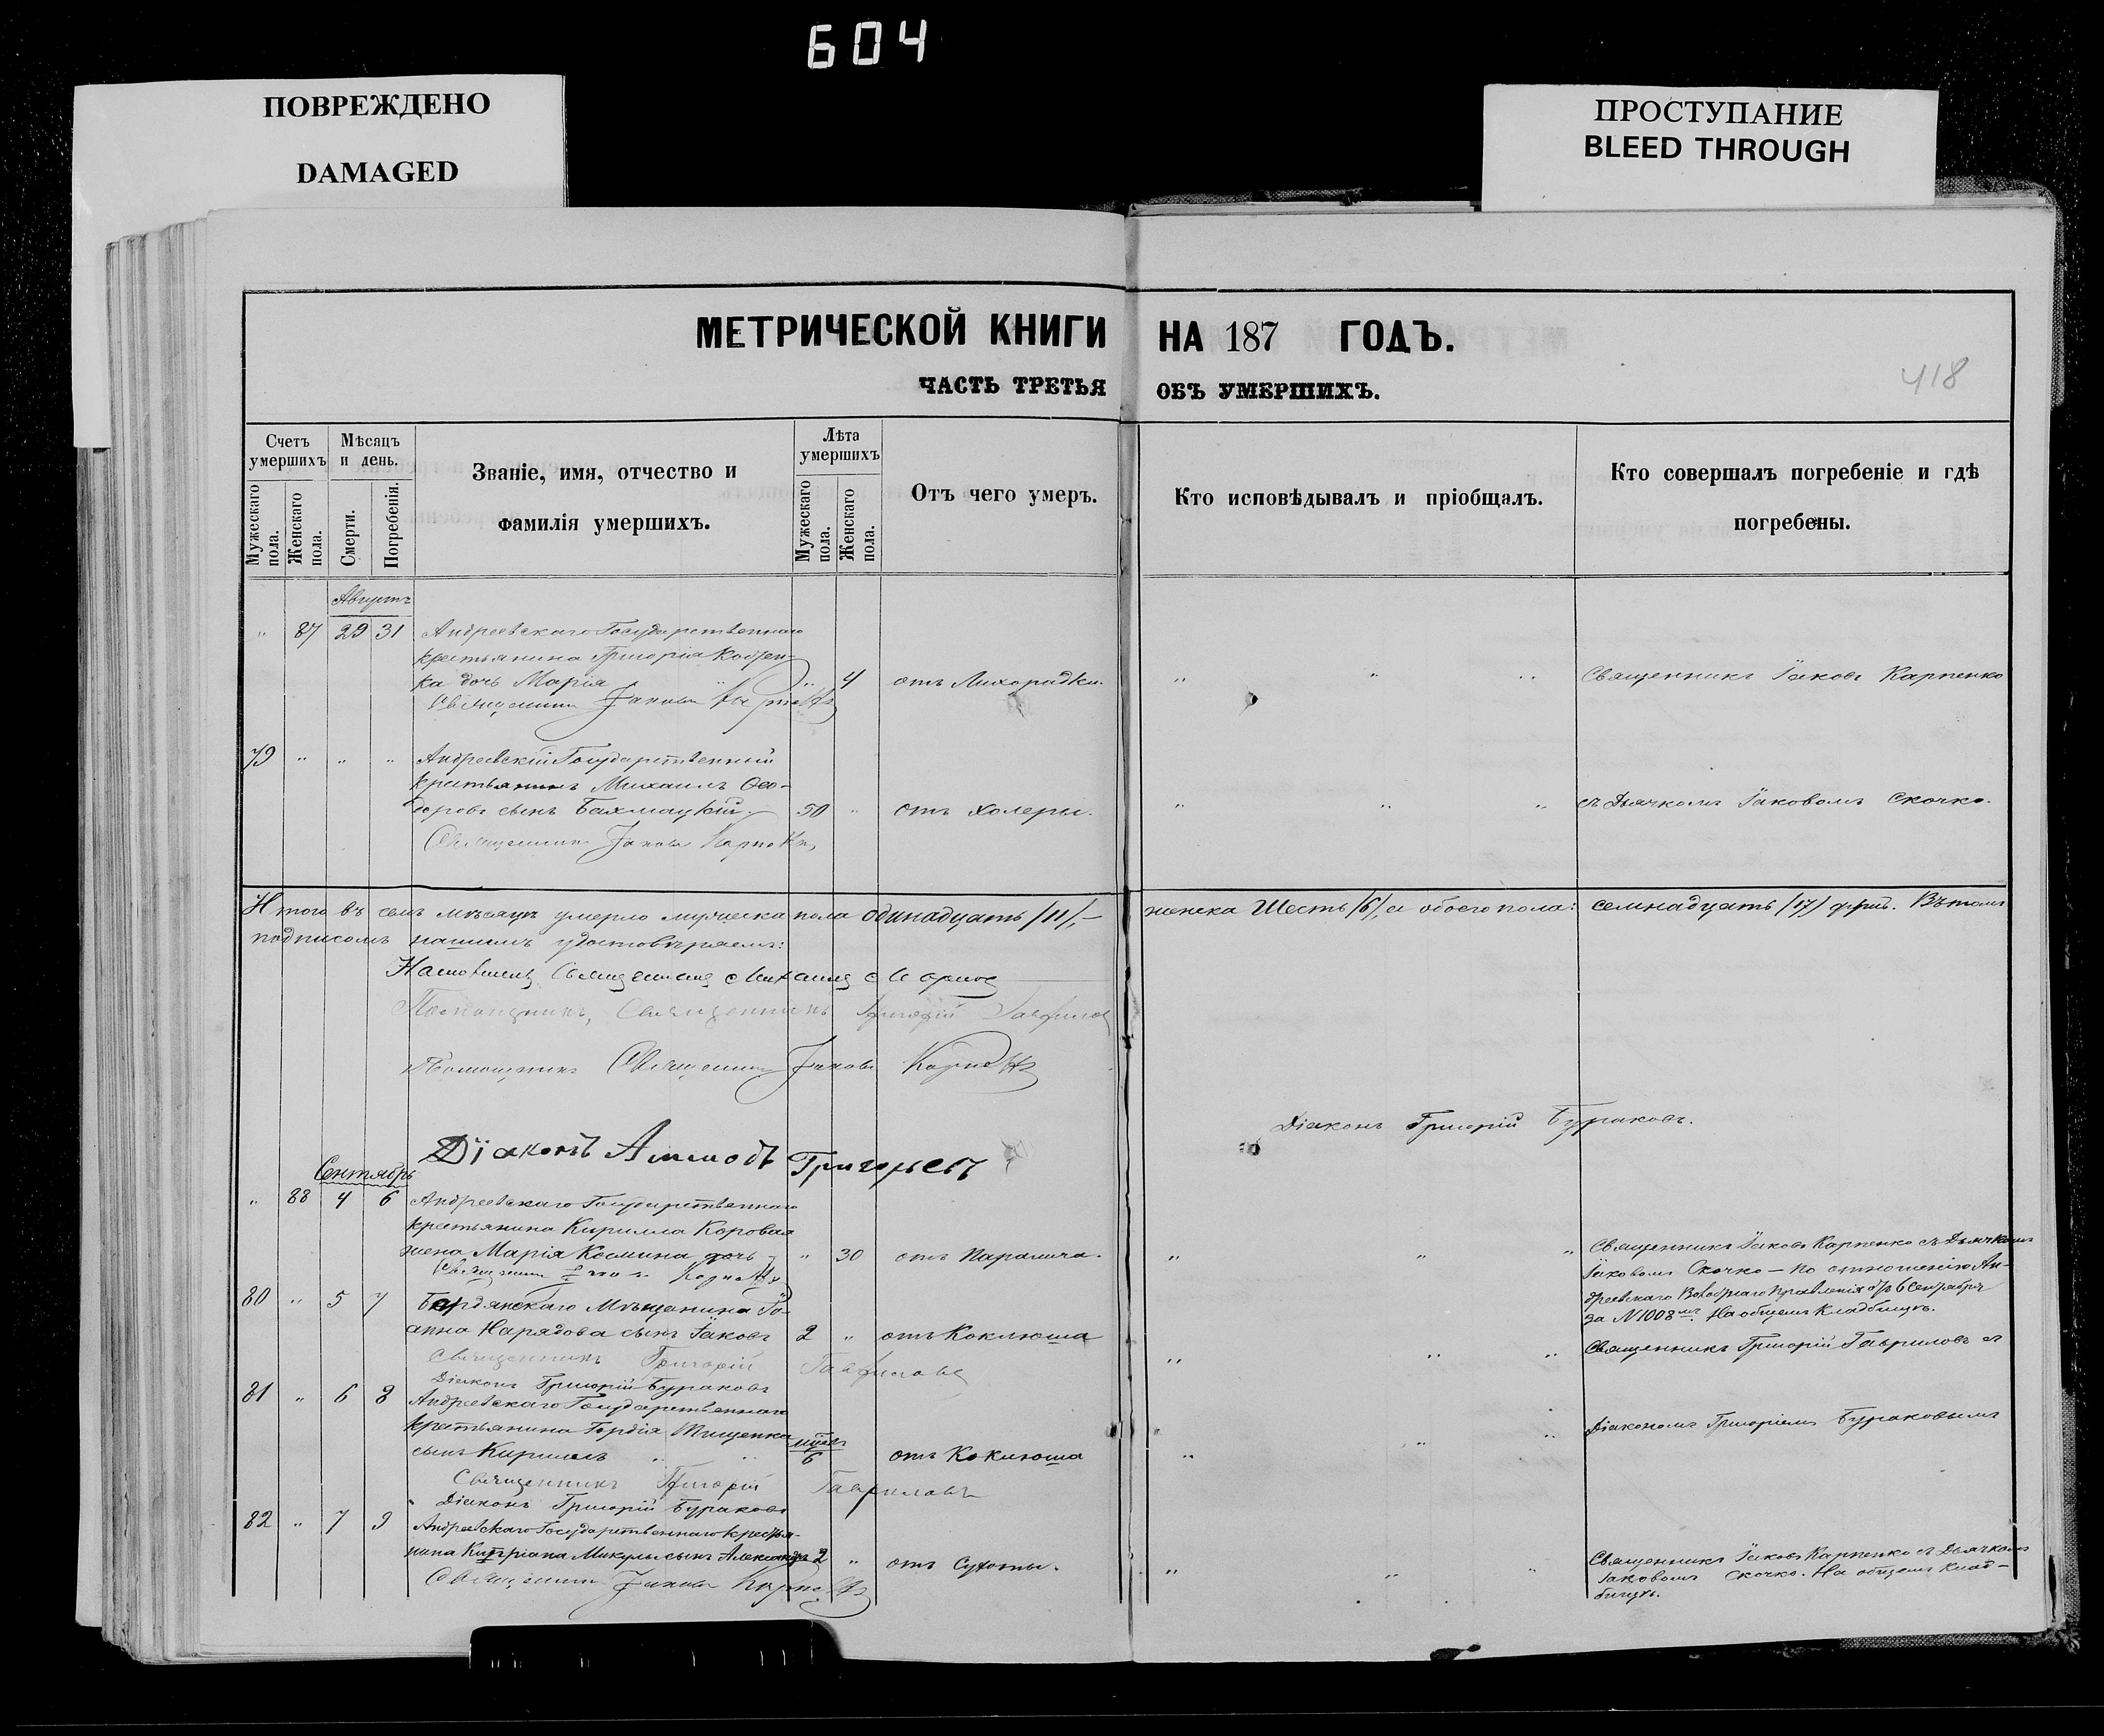 604
ПОВРЕЖДЕНО
DAMAGED
ПРОСТУПАНИЕ
BLEED THROUGH
МЕТРИЧЕСКОЙ КНИГИ НА 187 ГОДЪ.
418
ЧАСТЬ ТРЕТЬЯ ОБЪ УМЕРШИХЪ.
Счетъ умершихъ
Мужескаго пола.
Женскаго пола.
Мѣсяцъ и день.
Смерти.
Погребенія.
Званіе, имя, отчество и фамилія умершихъ.
Лѣта умершихъ
Мужескаго пола.
Женскаго пола.
Отъ чего умеръ.
Кто исповѣдывалъ и пріобщалъ.
Кто совершалъ погребеніе и гдѣ погребены.
Августъ
" 87 29 31 Андреевскаго Государственнаго
крестьянина Григорія
ка дочь Марія " 4 отъ Лихорадки. " " " Священникъ Іаковъ Карпенко
Священникъ Іаковъ Карпенко
79 " " " Андреевскій Государственный
крестьянинъ Михаилъ Ѳео-
доровъ сынъ Бахмацкій. 50 " отъ холеры. " " " съ Дьячкомъ Іаковомъ Скочко.
Священникъ Іаковъ Карпенко
Итого въ семъ мѣсяцѣ умерло мужеска пола одинадцать /11/, женска Шесть /6/, а обоего пола: семнадцать /17/ душъ. Въ томъ
подписомъ нашимъ удостовѣряемъ:
Священникъ Михаилъ
Помощникъ, Священникъ Григорій Гавриловъ
Помощникъ Священникъ Іаковъ Карпенко
Діаконъ Григорій Бураковъ.
Діаконъ Григорьевъ
Сентябрь
" 88 4 6 Андреевскаго Государственнаго
крестьянина Кирилла Коровая
жена Марія Космина дочь " 30 отъ Паралича. " " " Священникъ Іаковъ Карпенко съ Дьячкомъ
Священникъ Іаковъ Карпенко
Іаковомъ Скочко — по отношенію Ан-
дреевскаго Волостнаго Правленія отъ 6 Сентября
за N 1008мъ. На общемъ Кладбищѣ.
80 " 5 7 Бердянскаго Мѣщанина Іо-
анна Нарядова сынъ Іаковъ 2 " отъ Коклюша " " " Священникъ Григорій Гавриловъ съ
Священникъ Григорій Гавриловъ
Діаконъ Григорій Бураковъ
81 " 6 8 Андреевскаго Государственнаго
крестьянина Гордія Тищенка Діакономъ Григоріемъ Бураковымъ
сынъ Кирилъ " " 6 отъ Коклюша "
Священникъ Григорій Гавриловъ
Діаконъ Григорій Бураковъ
82 " 7 9 Андреевскаго Государственнаго крестья-
нина Кипріана Микулы сынъ Александръ 2 " отъ Сухоты. " " " Священникъ Іаковъ Карпенко съ Дьячкомъ
Священникъ Іаковъ Карпенко
Іаковомъ Скочко. На общемъ Клад-
бищѣ.